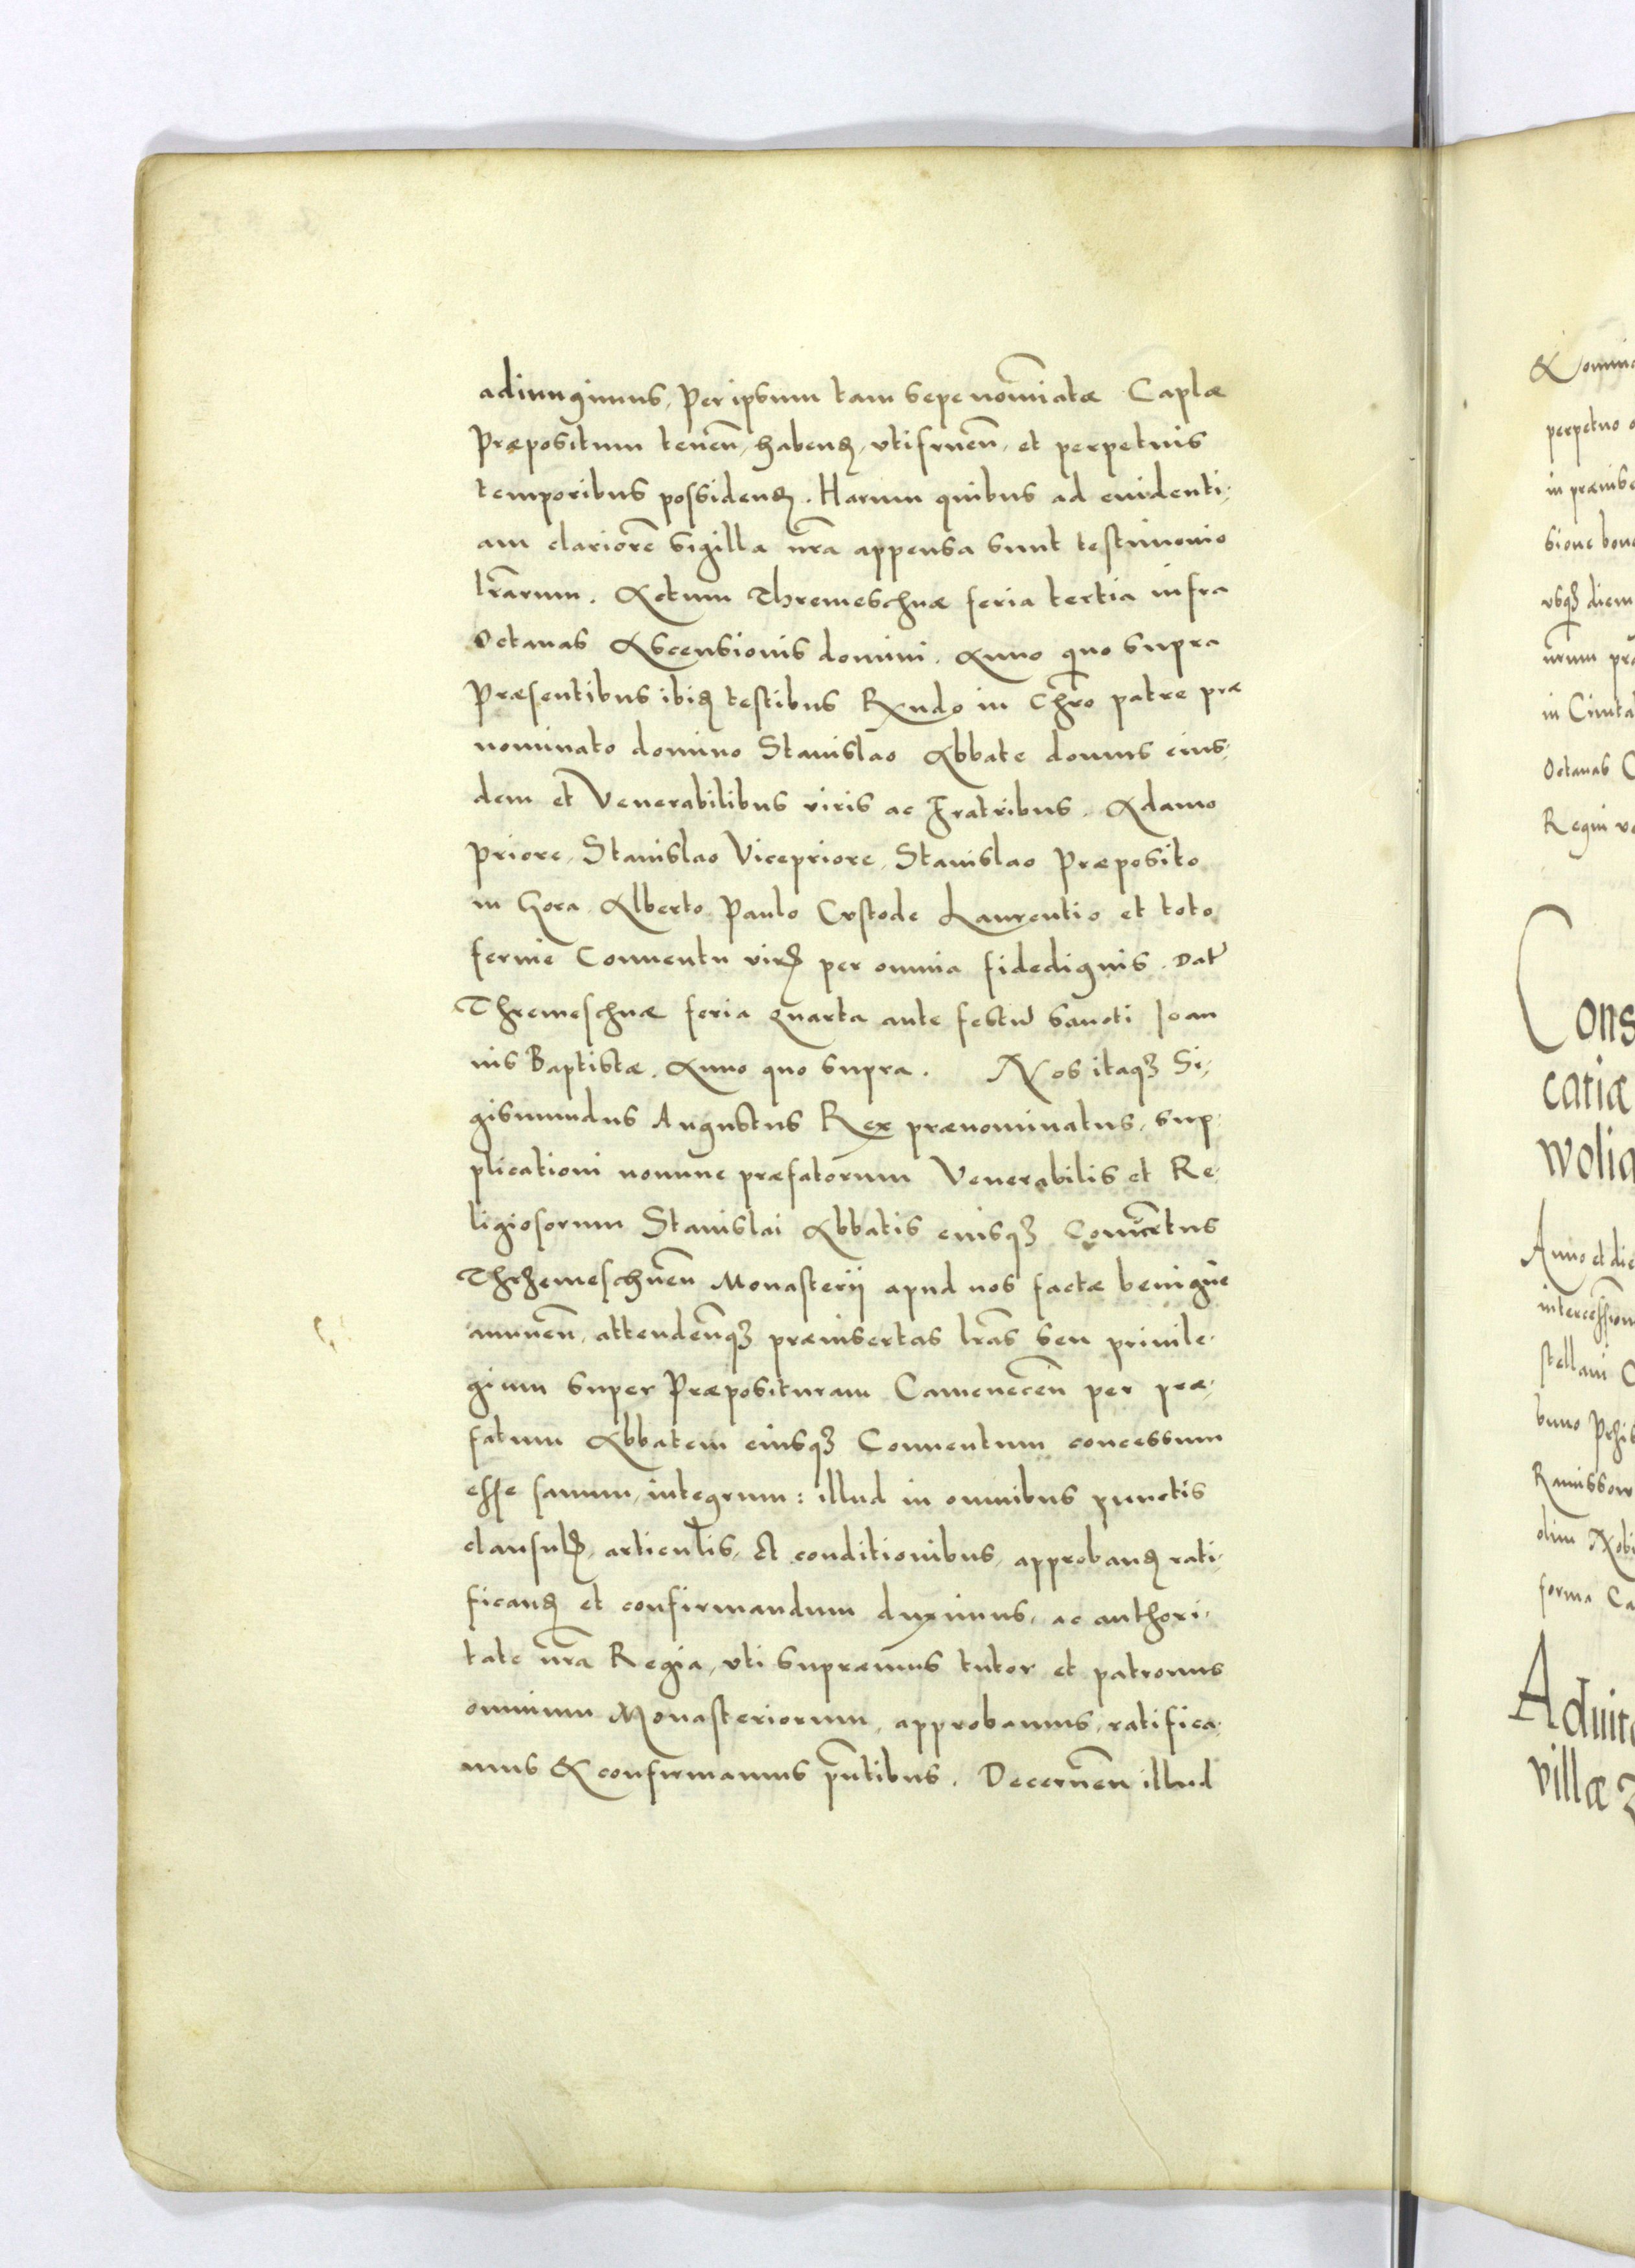 adiungimus, Per ipsum tam sepe nom̃iatæ Caplæ
Præpositum teneñ, habenꝫ, vtifrueñ, et perpetuis
temporibus possidenꝫ. Harum quibus ad euidenti-
am clariorẽ sigilla nr̃a appensa sunt testimonio
lr̃arum. Actum Thremeschnæ feria tertia infra
Octauas Ascensionis domini. Anno quo supra
Præsentibus ibiꝫ testibus Rxndo in Chr̃o patre præ
nominato domino Stanislao Abbate domus eius-
dem et Venerabilibus viris ac Fratribus. Adamo
Priore, Stanislao Vicepriore, Stanislao Præposito
in Gora Alberto Paulo Custode Laurentio et toto
ferme Conuentu virꝫ per omnia fidedignis. Datũ
Thremeschnæ feria quarta ante festũ sancti Joan
nis Baptistæ, Anno quo supra. Nos itaqꝫ Si-
gismundus Augustus Rex prænominatus, sup-
plicationi nomine præfatorum Venerabilis et Re-
ligiosorum Stanislai Abbatis eiusqꝫ Conuentus
Thrzemeschneñ Monasterii apud nos factæ benigne
annueñ, attendeñqꝫ præinsertas lr̃as seu priuile-
gium super Præposituram Cameneceñ per præ-
fatum Abbatem eiusqꝫ Conuentum concessum
esse sanum, integrum: illud in omnibus punctis
clausulꝫ, articulis, et conditionibus, approbanꝫ rati-
ficanꝫ et confirmandum duximus, ac authori-
tate nr̃a Regia, vti supræmus tutor et patronus
omnium Monasteriorum, approbamus, ratifica-
mus & confirmamus pñtibus. Decerneñ illud
perpetuo
sione
vsqꝫ diem
Octauas
Cons
catiæ
Anno et die
stellani
forma
villæ